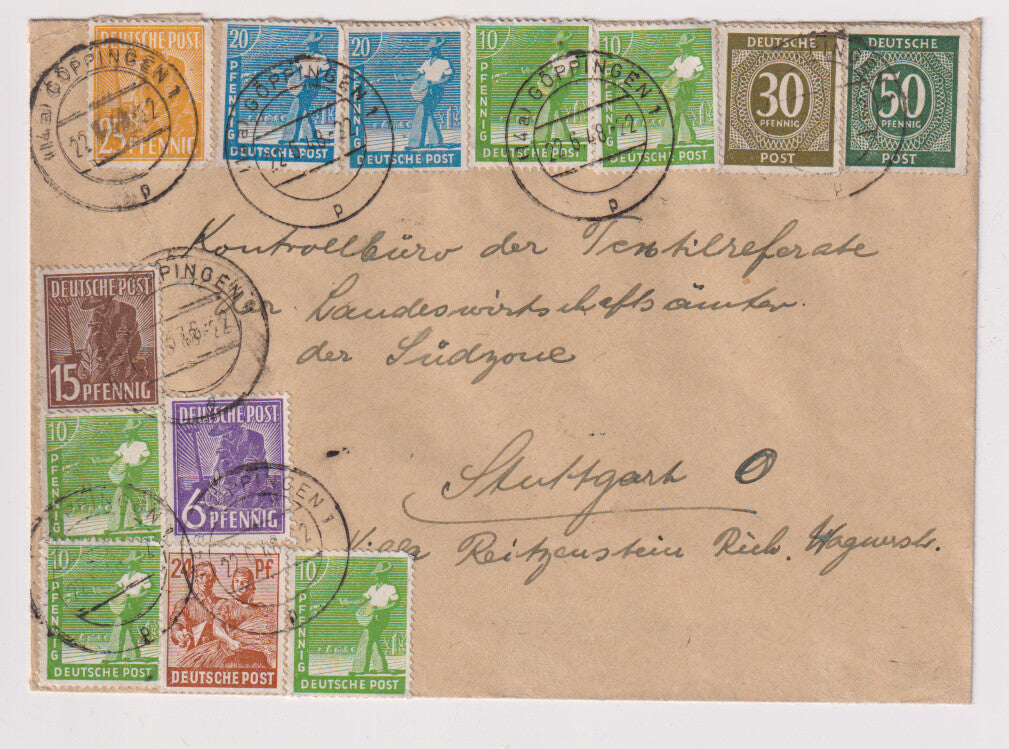 DEUTSCHE POST
25 PFENNIG
20 PFENNIG
DEUTSCHE POST
20 PFENNIG
DEUTSCHE POST
10 PFENNIG
DEUTSCHE POST
10 PFENNIG
DEUTSCHE POST
DEUTSCHE
30
PFENNIG
POST
DEUTSCHE
50
PFENNIG
POST
(14a) GÖPPINGEN 1
22. 6.48.-22
p
GÖPPINGEN 1
p
(14a) GÖPPINGEN 1
22.6.48.-22
p
Kontrollbüro der Textilreferate
der Landeswirtschaftsämter
der Südzone
Stuttgart O
Villa Reitzenstein Rich. Wagnerstr.
DEUTSCHE POST
15 PFENNIG
DEUTSCHE POST
6 PFENNIG
10 PFENNIG
10 PFENNIG
DEUTSCHE POST
24 Pf.
DEUTSCHE POST
10 PFENNIG
DEUTSCHE POST